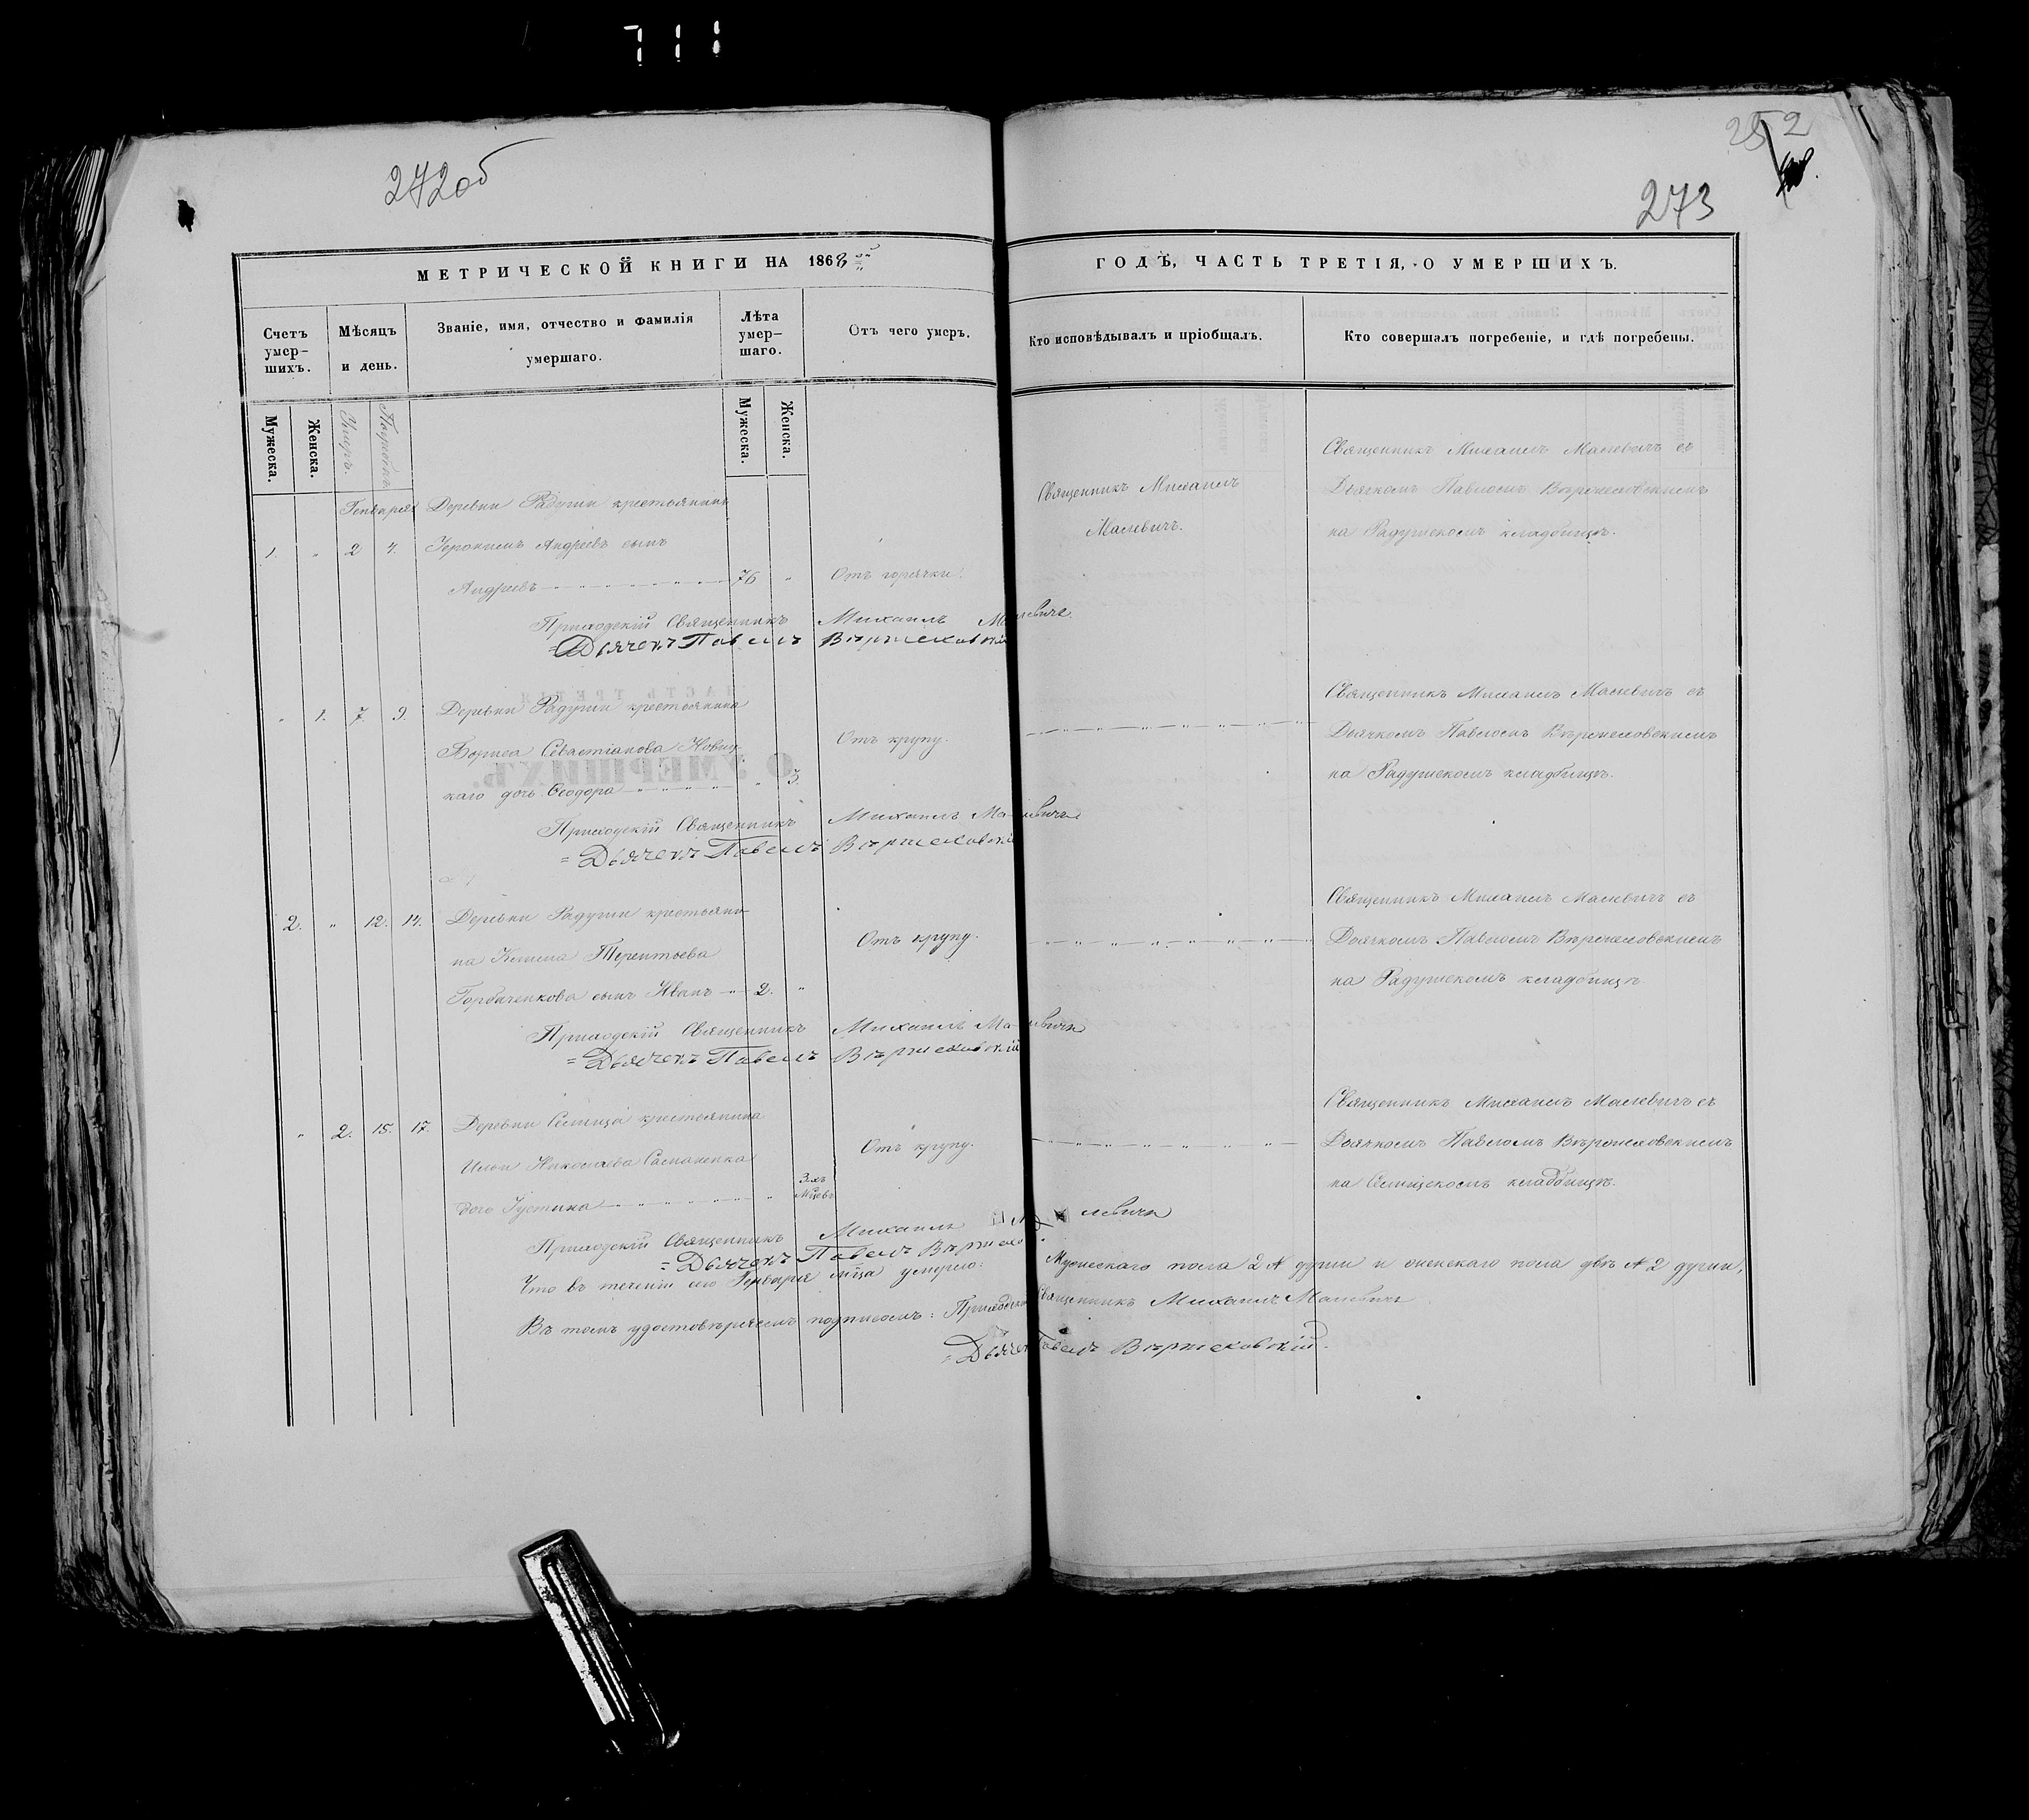 711
272об
252
273
МЕТРИЧЕСКОЙ КНИГИ НА 1868 ой
ГОДЪ, ЧАСТЬ ТРЕТІЯ, О УМЕРШИХЪ.
Счетъ умер-
шихъ.
Мѣсяцъ
и день.
Званіе, имя, отчество и фамилія
умершаго.
Лѣта
умер-
шаго.
Отъ чего умеръ.
Кто исповѣдывалъ и пріобщалъ.
Кто совершалъ погребеніе, и гдѣ погребены.
Мужеска.
Женска.
Умеръ.
Мужеска.
Женска.
Генваря
Деревни Радуши крестьянинъ
1. " 2 4. Іеронимъ Андреевъ сынъ
Андреевъ 76 " Отъ горячки.
Священникъ Михаилъ
Малевичъ.
Священникъ Михаилъ Малевичъ съ
Дьячкомъ Павломъ
на Радушскомъ кладбищѣ.
Приходскій Священникъ Михаилъ Малевичъ
Дьячекъ Павелъ
" 1. 7. 9. Деревни Радуши крестьянина
Бориса Севастіанова Новиц-
каго дочь Ѳеодора " 3.
Отъ крупу.
Священникъ Михаилъ Малевичъ съ
Дьячкомъ Павломъ
на Радушскомъ кладбищѣ.
Приходскій Священникъ Михаилъ Малевичъ
Дьячекъ Павелъ
2. " 12. 14. Деревни Радуши крестьяни-
на Терентьева
Горбаченкова сынъ Иванъ 2. "
Отъ крупу.
Священникъ Михаилъ Малевичъ съ
Дьячкомъ Павломъ
на Радушскомъ кладбищѣ.
Приходскій Священникъ Михаилъ Малевичъ
Дьячекъ Павелъ
" 2. 15. 17. Деревни Селища крестьянина
Ильи Николаева
дочь Іустина " 3-хъ
мѣцевъ
Отъ крупу.
Священникъ Михаилъ Малевичъ съ
Дьячкомъ Павломъ
на Селищскомъ кладбищѣ.
Приходскій Священникъ Михаилъ Малевичъ
Дьячекъ Павелъ
Что въ теченіи сего Генваря мѣца умерло: Мужескаго пола 2 души и женскаго пола двѣ №2 души,
Въ томъ удостовѣряемъ подписомъ: Приходскій Священникъ Михаилъ Малевичъ
Дьячекъ Павелъ